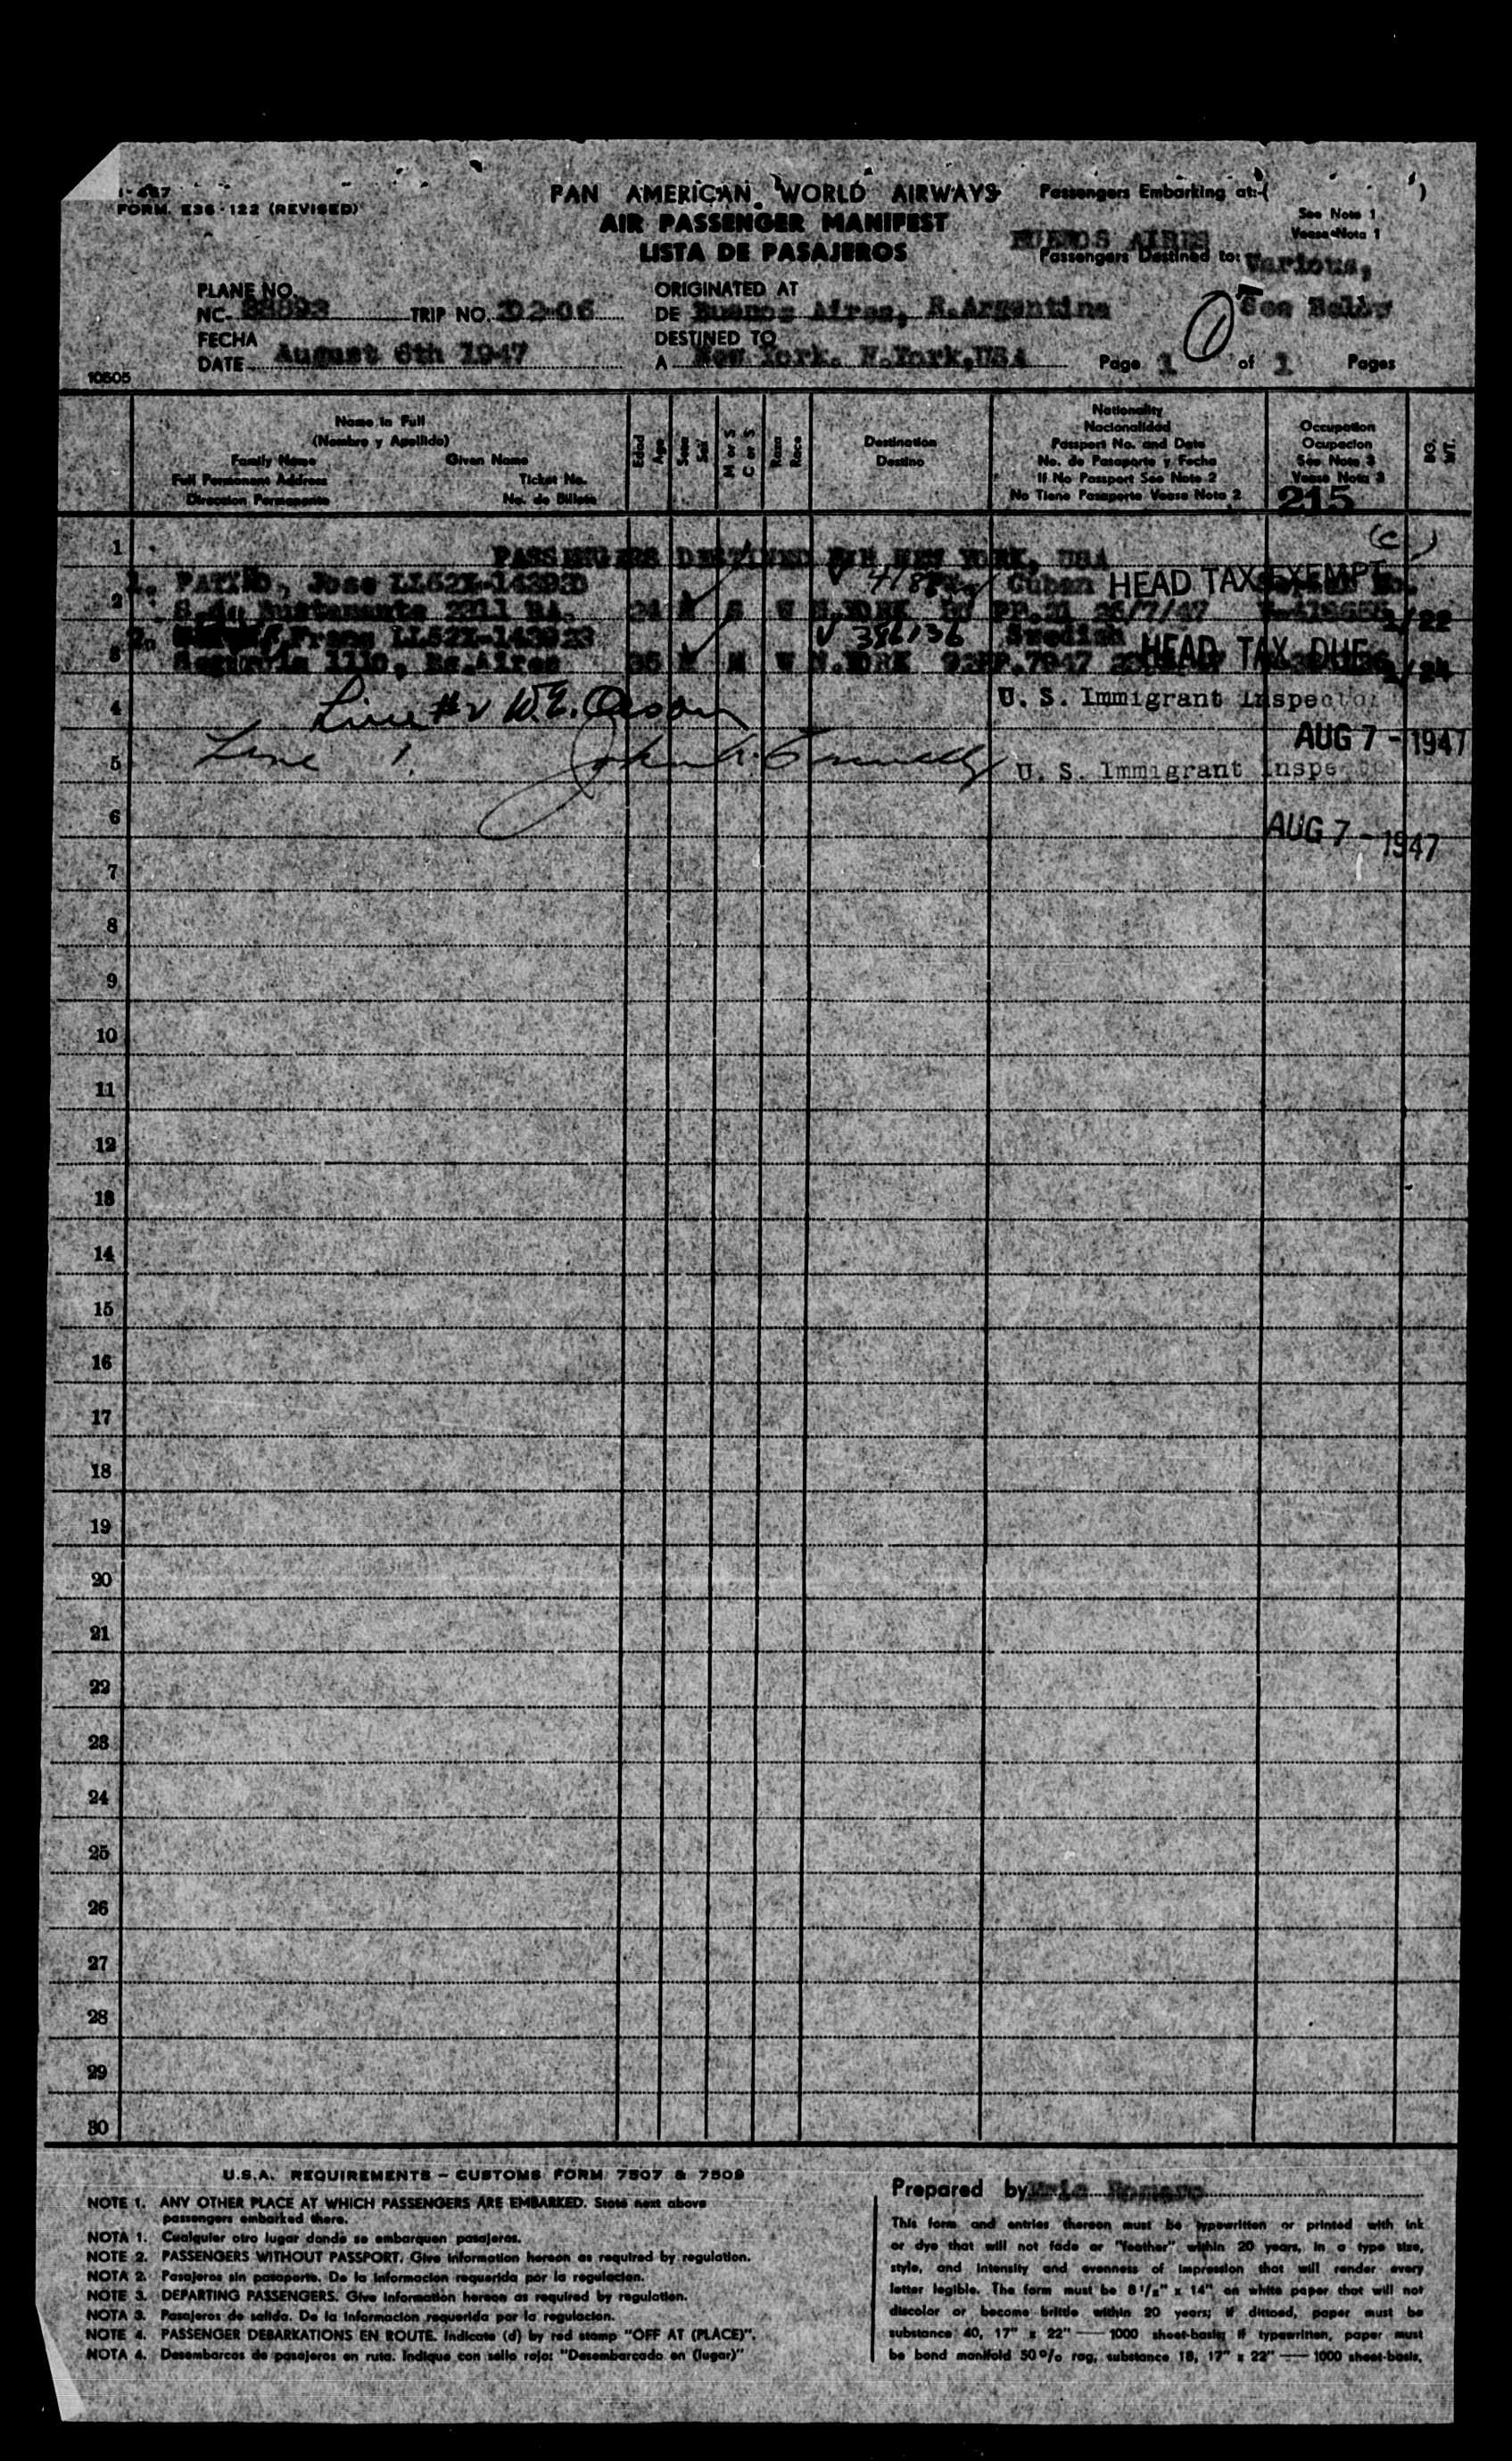 FORM. E36-122 (REVISED)
PAN AMERICAN WORLD AIRWAYS
AIR PASSENGER MANIFEST
LISTA DE PASAJEROS
Passengers Embarking at:-( )
See Note 1
Vease Nota 1
BUENOS AIRES
Passengers Destined to: Various,
See Below
PLANE NO.
NC- 88893 TRIP NO. 202-06
FECHA
DATE August 6th 1947
10505
ORIGINATED AT
DE Buenos Aires, R.Argentina
DESTINED TO
A New York. N.York,USA
Page 1 of 1 Pages
Name in Full
(Nombre y Apellido)
Family Name Given Name
Full Permanent Address Ticket No.
Direccion Permanente No. de Billete
Edad Age
Sexo Sex
M or S C or S
Raza Race
Destination
Destino
Nationality
Nacionalidad
Passport No. and Date
No. de Pasaporte y Fecha
If No Passport See Note 2
No Tiene Pasaporte Vease Nota 2
Occupation
Ocupacion
See Note 3
Vease Nota 3
215
BG. WT.
1
PASSENGERS DESTINED FOR NEW YORK, USA
(C.)
1. PATIÑO, Jose LL52X-143930 Cuban HEAD TAX EXEMPT
2 Bustamante 2211 BA. 24 M S W N.YORK PP.21 26/7/47 /22
2. Frans LL52X-143923 V 386136 Swedish HEAD TAX DUE
3 Segurola 1110, Bs.Aires 35 M M W N.YORK /24
4 Line #2 W.E. U. S. Immigrant Inspector
AUG 7 - 1947
5 Line 1. John U. S. Immigrant Inspector
6 AUG 7 - 1947
7
8
9
10
11
12
13
14
15
16
17
18
19
20
21
22
23
24
25
26
27
28
29
30
U.S.A. REQUIREMENTS - CUSTOMS FORM 7507 & 7509
NOTE 1. ANY OTHER PLACE AT WHICH PASSENGERS ARE EMBARKED. State next above
passengers embarked there.
NOTA 1. Cualquier otro lugar donde se embarquen pasajeros.
NOTE 2. PASSENGERS WITHOUT PASSPORT. Give information hereon as required by regulation.
NOTA 2. Pasajeros sin pasaporte. De la informacion requerida por la regulacion.
NOTE 3. DEPARTING PASSENGERS. Give information hereon as required by regulation.
NOTA 3. Pasajeros de salida. De la informacion requerida por la regulacion.
NOTE 4. PASSENGER DEBARKATIONS EN ROUTE. Indicate (d) by red stamp "OFF AT (PLACE)".
NOTA 4. Desembarcos de pasajeros en ruta. Indique con sello rojo: "Desembarcado en (lugar)"
Prepared by Eric Romero
This form and entries thereon must be typewritten or printed with ink
or dye that will not fade or "feather" within 20 years, in a type size,
style, and intensity and evenness of impression that will render every
letter legible. The form must be 8 1/2" x 14" on white paper that will not
discolor or become brittle within 20 years; if dittoed, paper must be
substance 40, 17" x 22" — 1000 sheet-basis; if typewritten, paper must
be bond manifold 50% rag, substance 18, 17" x 22" — 1000 sheet-basis.